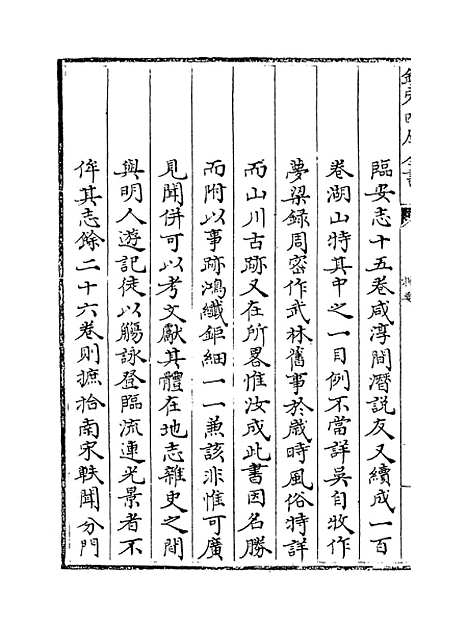 欽定四庫全書
提要
臨安志十五卷咸淳間潛説友又續成一百
卷湖山特其中之一目例不當詳吳自牧作
夢梁録周密作武林舊事於歲時風俗特詳
而山川古跡又在所畧惟汝成此書因名勝
而附以事跡鴻纖鉅細一一兼該非惟可廣
見聞併可以考文獻其體在地志雜史之間
與明人遊記徒以觴詠登臨流連光景者不
侔其志餘二十六卷則摭拾南宋軼聞分門